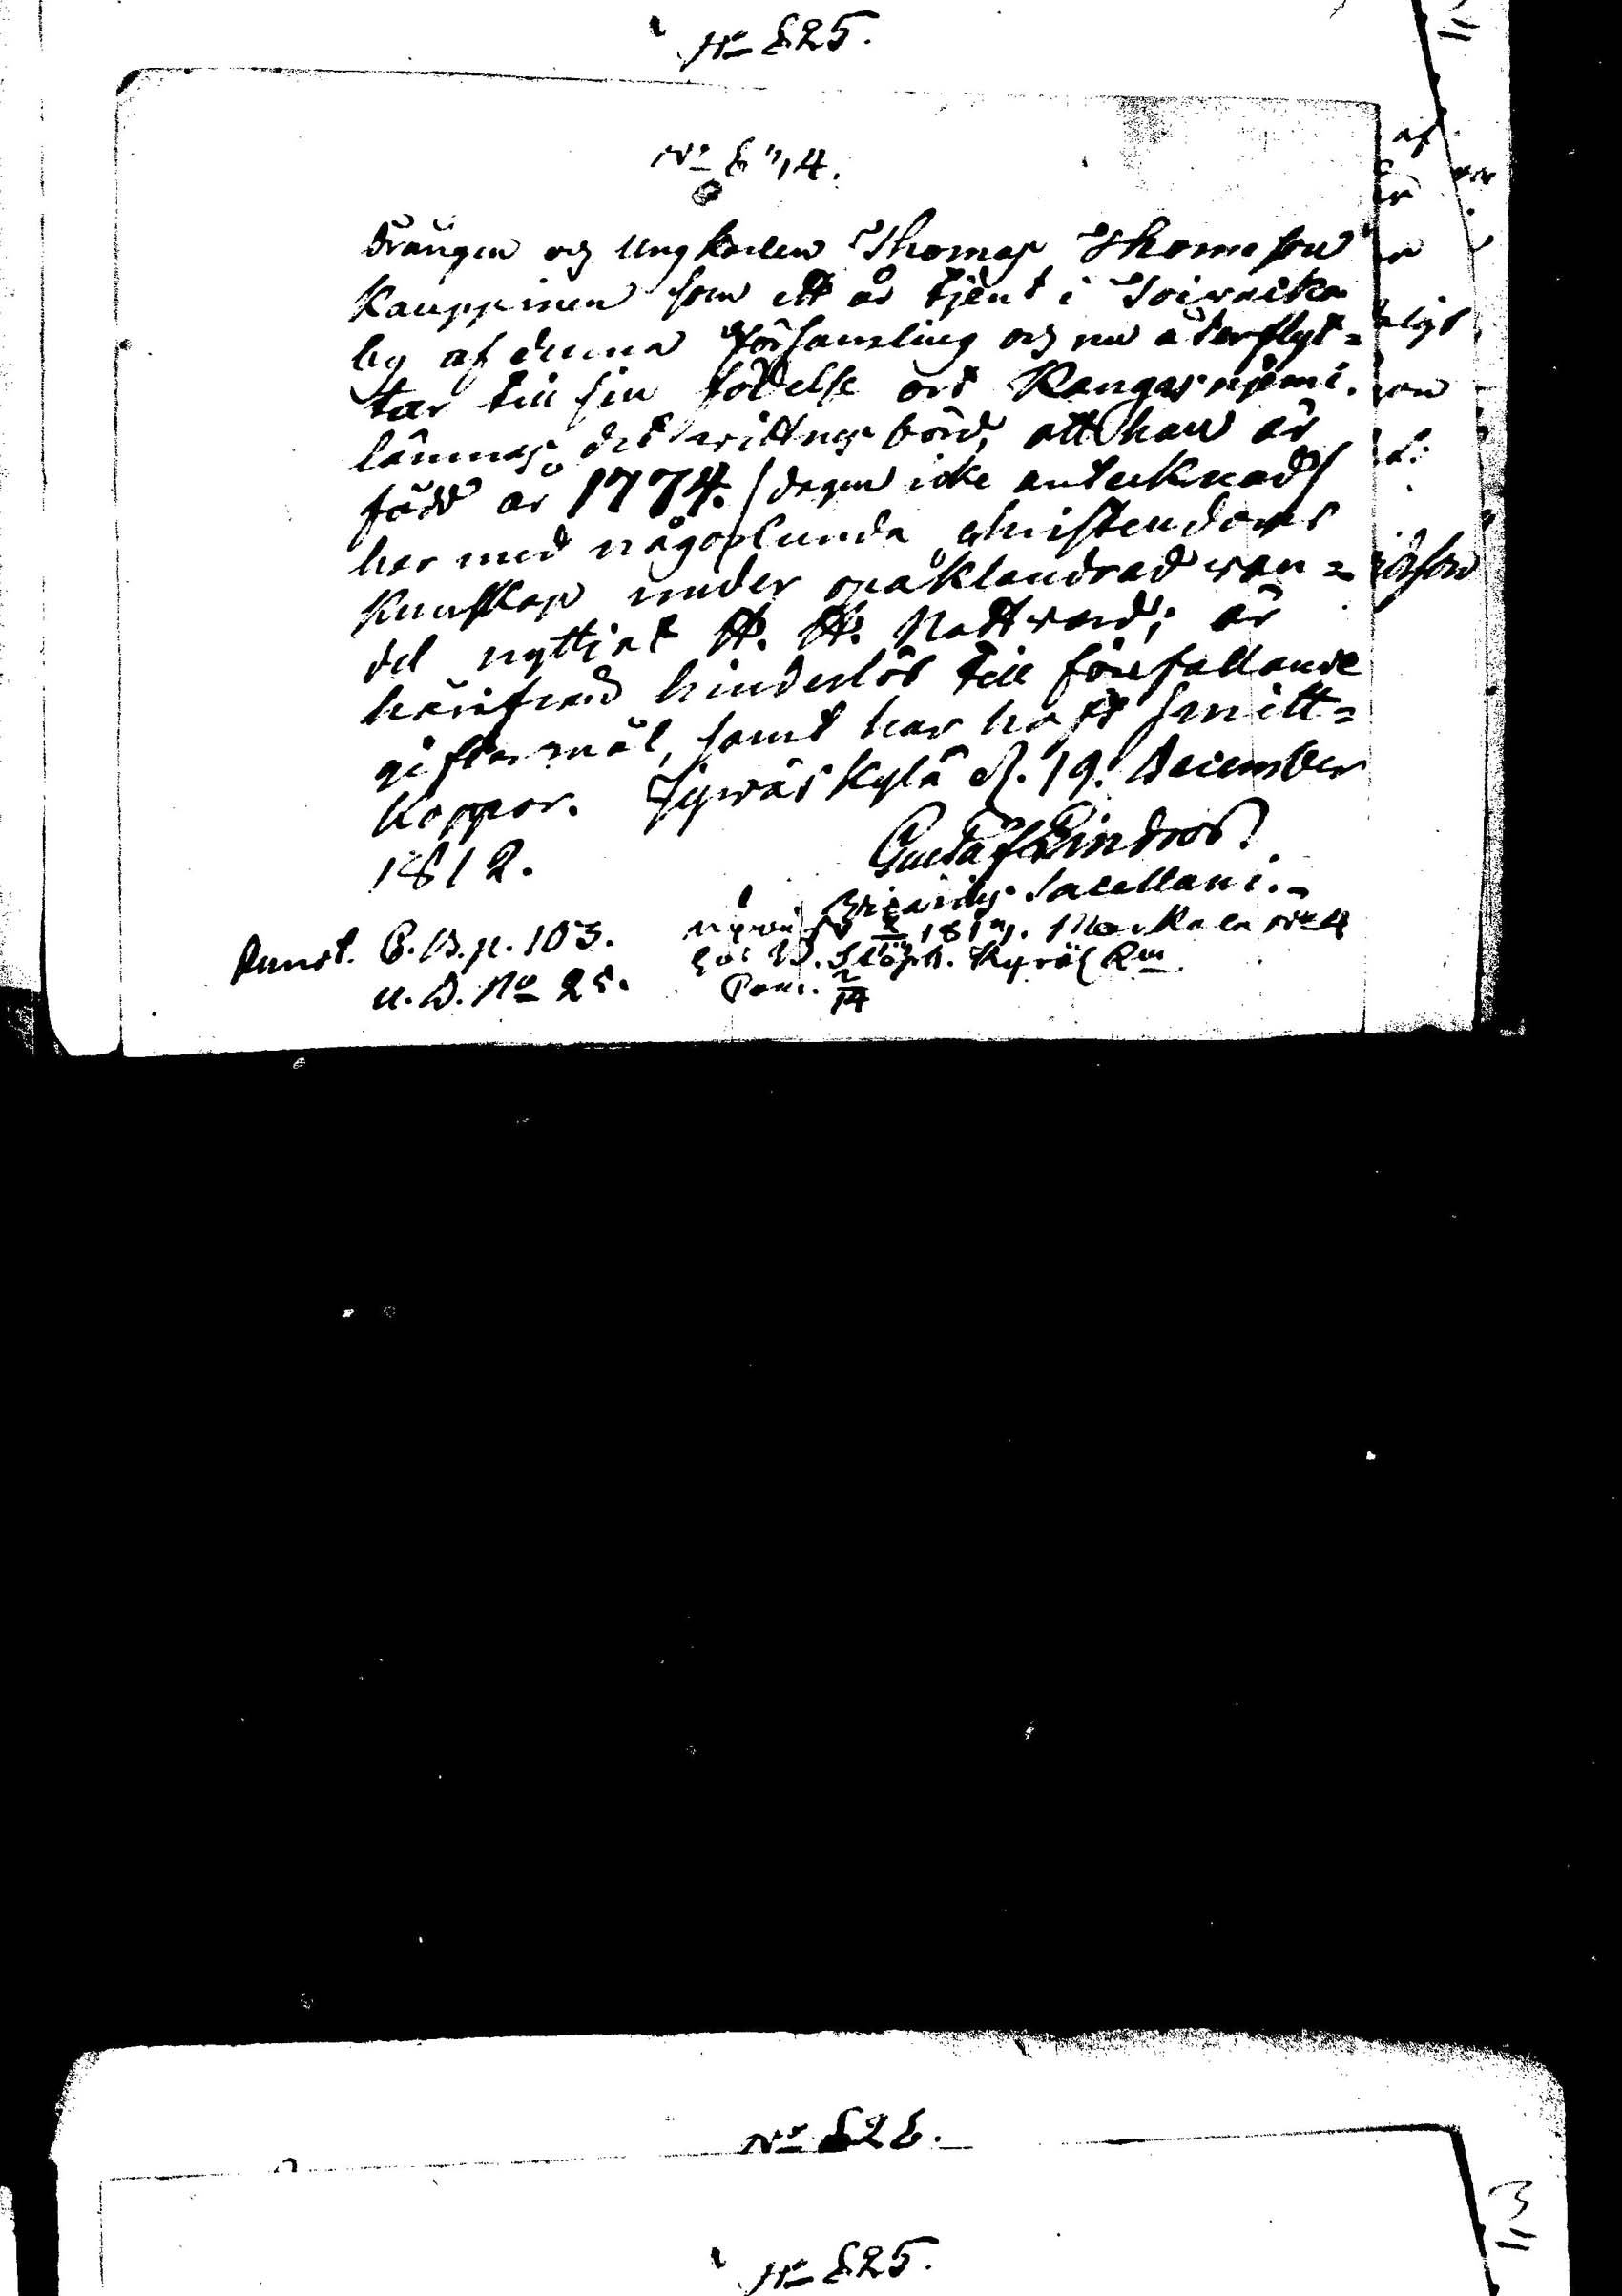 No 825.
No 814.
Drängen och Ungkarlen Thomas Thomasson
Kauppinen som ett år tjent i Toivacka
by af denna Församling och nu återflyt=
tar till sin födelse ort Kangasniemi.
lämnas det vittnesbörd, att han är
född år 1774. /dagen icke antecknad/
har med någorlunda christendoms
kunskap under oklandrad van=
del nyttjat H. H. Nattvard; är
härifrån hinderlös till förefallande
giftermål, samt har haft smitt=
koppor. Jywäskylä d. 19. December
1812.
Gustaf Lindroos
Vicarius Sacellani.
Annot. C.B.p. 103.
u. D. No 25.
af
son
No 828.
No 825.